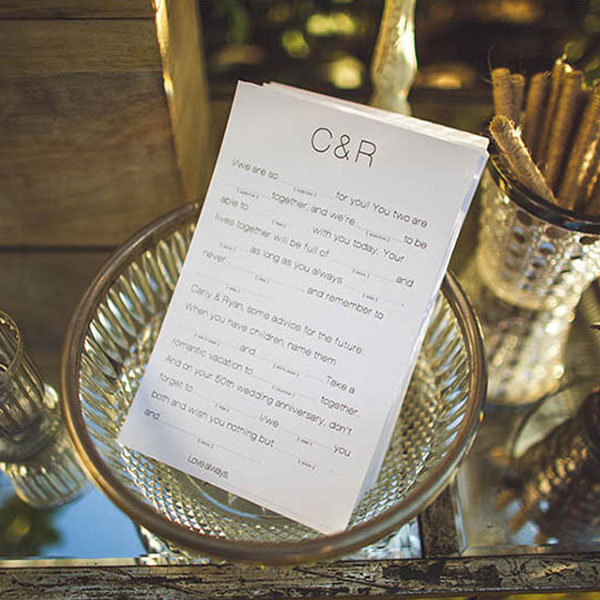 C&R
I/we are so ________ for you! You two are
________ together, and we're ________ to be
able to ________ with you today. Your
lives together will be full of ________ and
________ as long as you always ________,
never ________, and remember to
________.
Carly & Ryan, some advice for the future:
When you have children, name them
________ and ________. Take a
romantic vacation to ________ together.
And on your 50th wedding anniversary, don't
forget to ________. I/we ________ you
both and wish you nothing but ________
and ________.
Love always,